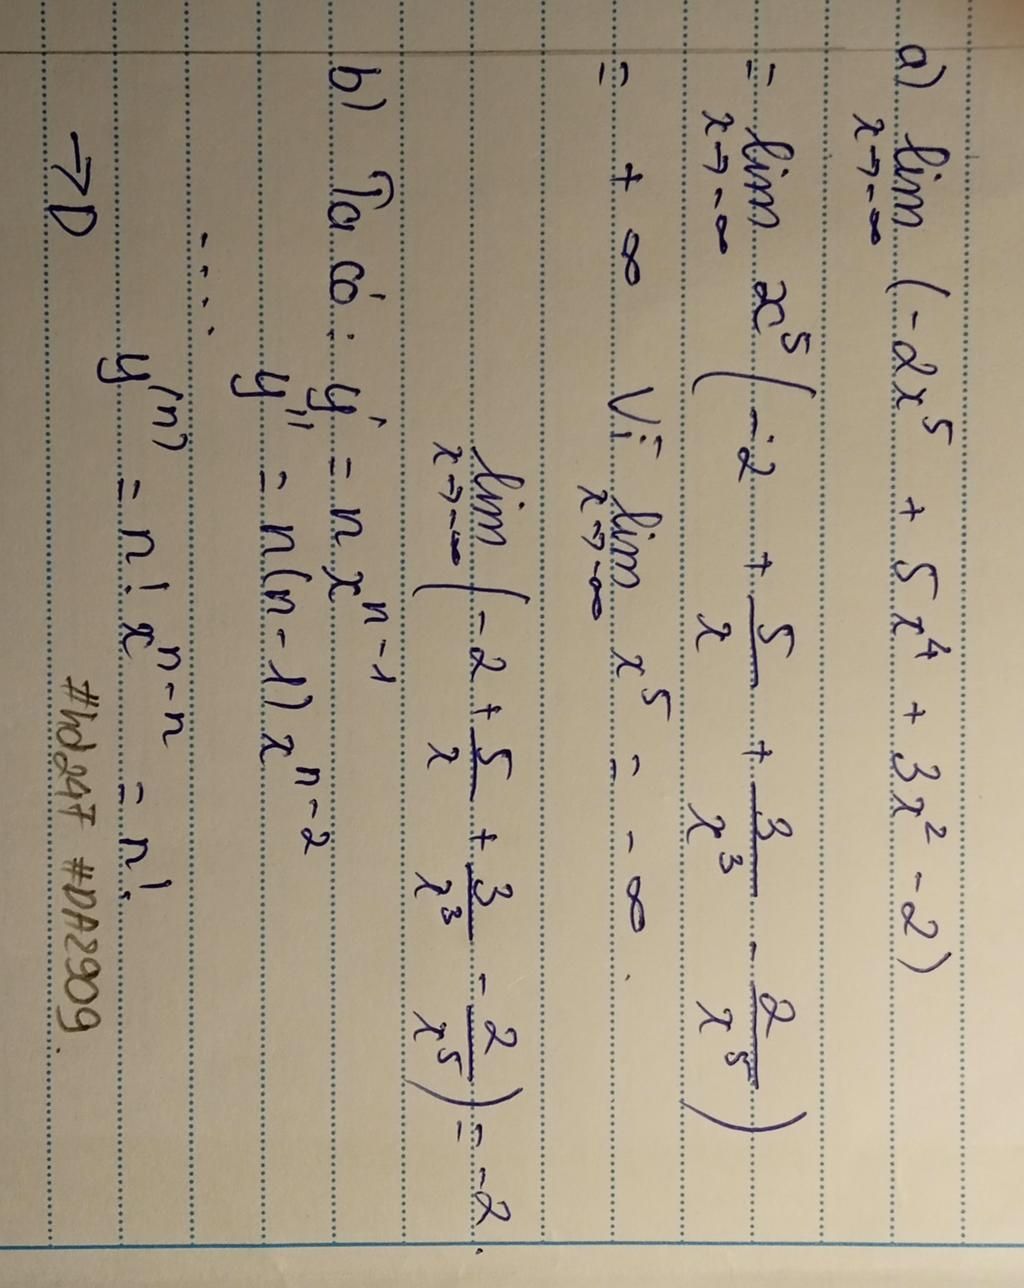 a) lim (-2x⁵ + 5x⁴ + 3x² - 2)
x→-∞
= lim x⁵ (-2 + 5/x + 3/x³ - 2/x⁵)
x→-∞
= + ∞ Vì lim x⁵ = - ∞.
x→-∞
lim (-2 + 5/x + 3/x³ - 2/x⁵) = -2.
x→-∞
b) Ta có: y' = n xⁿ⁻¹
y'' = n(n-1) xⁿ⁻²
....
y⁽ⁿ⁾ = n! xⁿ⁻ⁿ = n!
→D
#hd247 #DA2909.